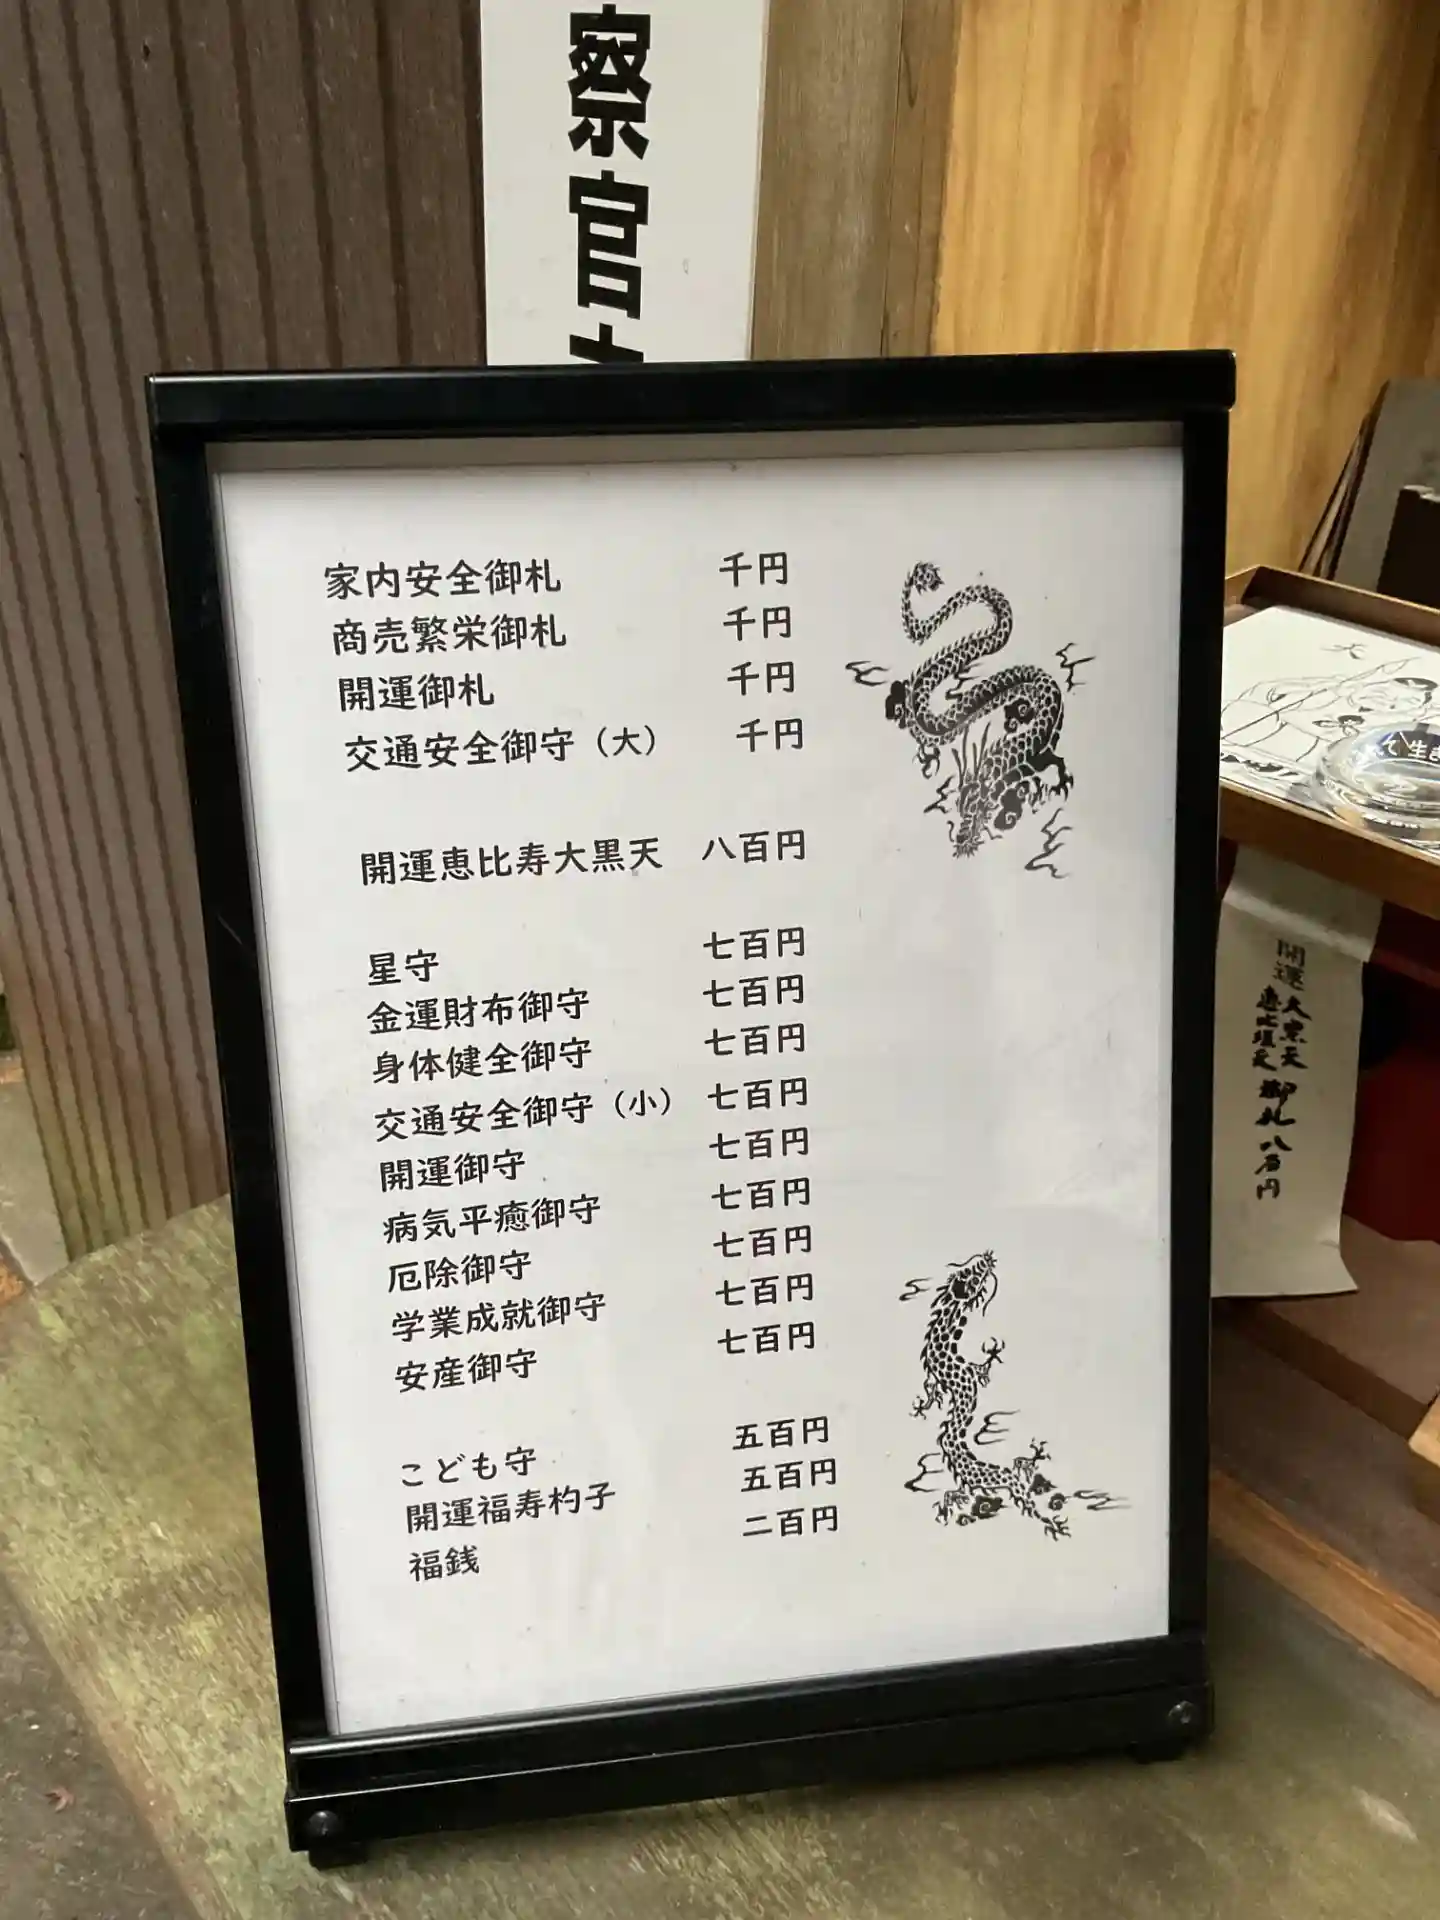 察官
家内安全御札 千円
商売繁栄御札 千円
開運御札 千円
交通安全御守（大） 千円
開運恵比寿大黒天 八百円
星守 七百円
金運財布御守 七百円
身体健全御守 七百円
交通安全御守（小） 七百円
開運御守 七百円
病気平癒御守 七百円
厄除御守 七百円
学業成就御守 七百円
安産御守 七百円
こども守 五百円
開運福寿杓子 五百円
福銭 二百円
て生き
開運
大黒天
御札
八百円